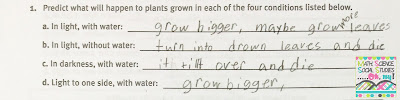 1. Predict what will happen to plants grown in each of the four conditions listed below.
a. In light, with water: grow bigger, maybe grow more leaves
b. In light, without water: turn into drown leaves and die
c. In darkness, with water: it till over and die
d. Light to one side, with water: grow bigger,
MATH, SCIENCE,
SOCIAL STUDIES
......Oh, my!